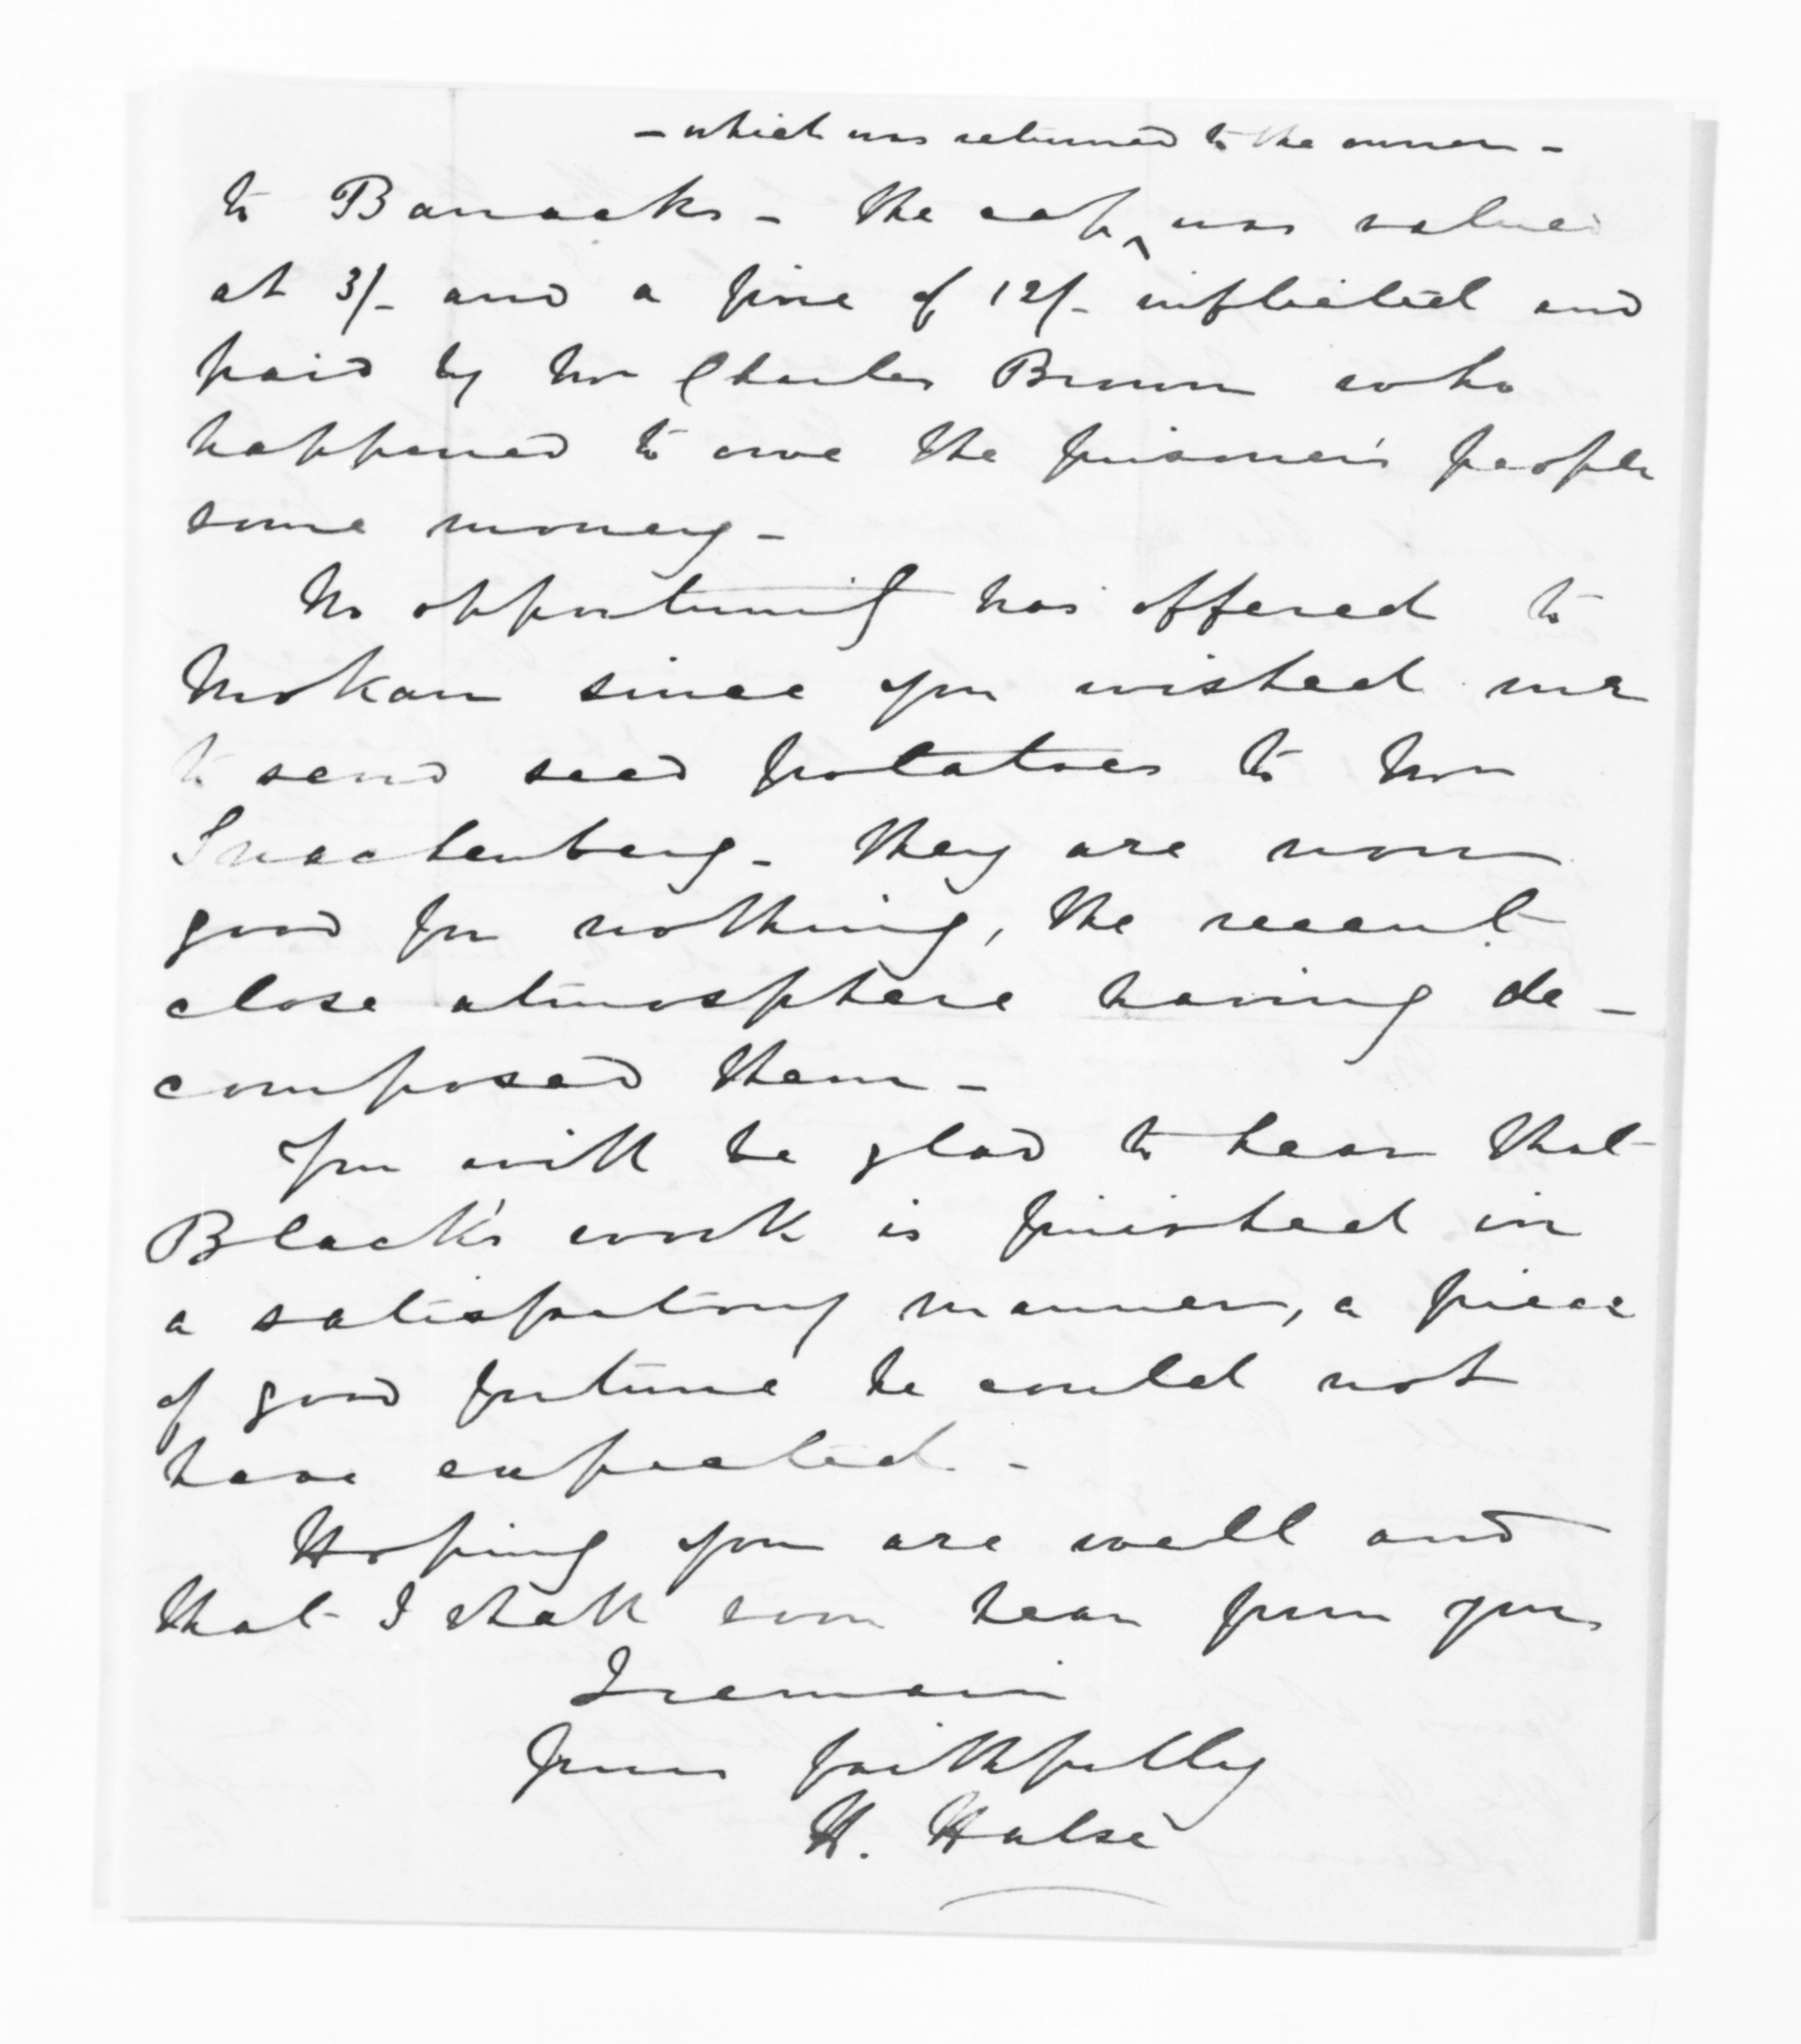 - which was returned to the owner -
to Barracks - the cap ^ was valued
at 3/- and a fine of 12/- inflicted and
paid by Mr Charles Brown who
happened to owe the prisoner's people
some money -
No opportunity has offered to
Mokau since you wished me
to send seed potatoes to Mr
Snachenberg - they are now
good for nothing, the recent
close atmosphere having de-
composed them -
You will be glad to hear that
Black's work is finished in
a satisfactory manner, a piece
of good fortune he could not
have expected. -
Hoping you are well and
that I shall soon hear from you
I remain
Yours faithfully
H. Halse